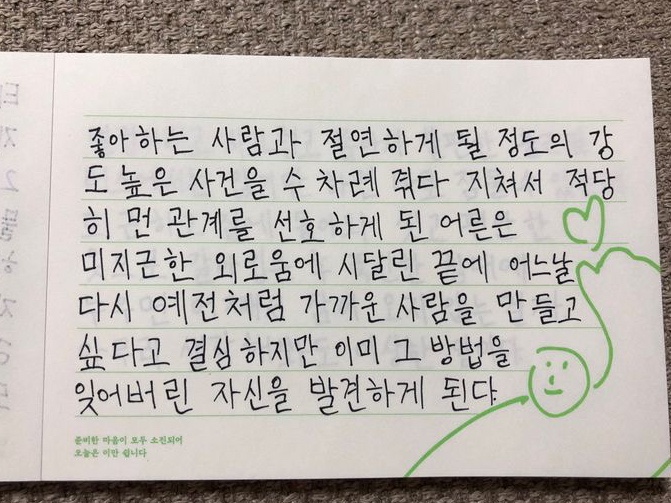 좋아하는 사람과 절연하게 될 정도의 강
도 높은 사건을 수 차례 줘다 지쳐서 적당
히 먼 관계를 선호하게 된 어른은
미지근한 외로움에 시달린 끝에 어느날
다시 예전처럼 가까운 사람을 만들고
싶다고 결심하지만 이미 그 방법을
잊어버린 자신을 발견하게 된다.
준비한 마음이 모두 소진되어
오늘은 이만 쉽니다